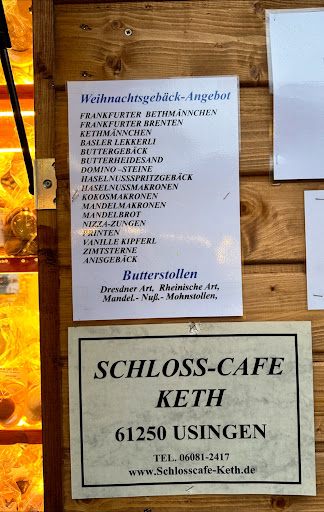 Weihnachtsgebäck-Angebot
FRANKFURTER BETHMÄNNCHEN
FRANKFURTER BRENTEN
KETHMÄNNCHEN
BASLER LEKKERLI
BUTTERGEBÄCK
BUTTERHEIDESAND
DOMINO –STEINE
HASELNUSSSPRITZGEBÄCK
HASELNUSSMAKRONEN
KOKOSMAKRONEN
MANDELMAKRONEN
MANDELBROT
NIZZA-ZUNGEN
PRINTEN
VANILLE KIPFERL
ZIMTSTERNE
ANISGEBÄCK
Butterstollen
Dresdner Art, Rheinische Art,
Mandel.- Nuß.- Mohnstollen,
SCHLOSS-CAFE
KETH
61250 USINGEN
TEL. 06081-2417
www.Schlosscafe-Keth.de